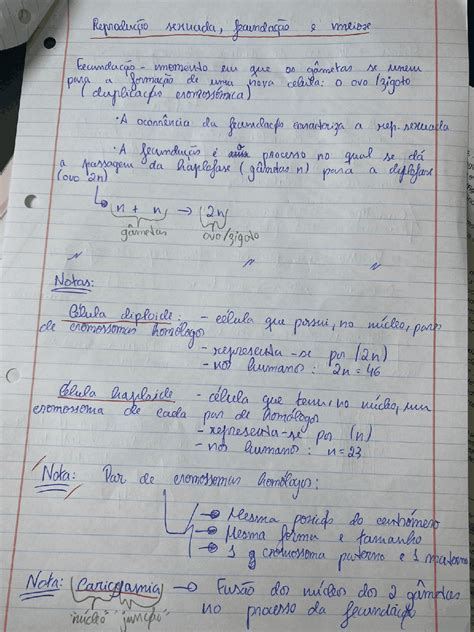 Reprodução sexuada, fecundação e meiose
Fecundação - momento em que os gâmetas se unem
para a formação de uma nova célula: o ovo/zigoto
(duplicação cromossómica)
· A ocorrência da fecundação caracteriza a rep. sexuada
· A fecundação é o processo no qual se dá
a passagem da haplofase (gâmetas n) para a diplofase
(ovo 2n)
n + n → 2n
gâmetas ovo/zigoto
Notas:
Célula diploide: - célula que possui, no núcleo, pares
de cromossomas homólogos
- representa-se por (2n)
- nos humanos: 2n = 46
Célula haploide - célula que tem, no núcleo, um
cromossoma de cada par de homólogos
- representa-se por (n)
- nos humanos: n = 23
Nota: Par de cromossomas homólogos:
→ Mesma posição do centrómero
→ Mesma forma e tamanho
→ 1 cromossoma paterno e 1 materno
Nota: Cariogamia → Fusão dos núcleos dos 2 gâmetas
"núcleo" "junção" no processo da fecundação